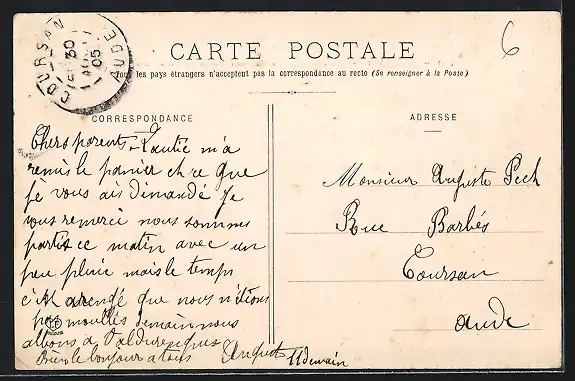 COURSAN
AUDE
30
05
6
CARTE POSTALE
Tous les pays étrangers n'acceptent pas la correspondance au recto (Se renseigner à la Poste)
CORRESPONDANCE
Chers parents tantie m'a
remis le panier et ce que
je vous ais dimandé Je
vous remerci nous sommes
partis ce matin avec un
peu pluie mais le temps
c'ét arengé que nous n'étions
pas moullés demain nous
allons a
le bonjour a tous
August
11 demain
ADRESSE
Monsieur Auguste Pech
Rue Barbés
Coursan
Aude